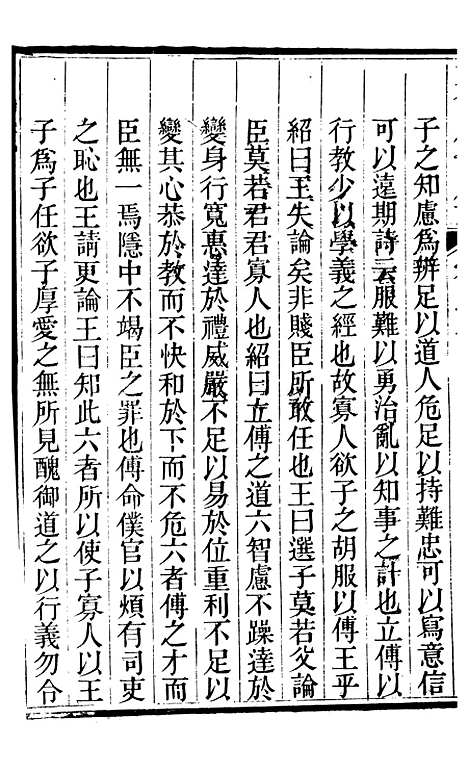 子之知慮爲辨足以道人危足以持難忠可以寫意信
可以遠期詩云服難以勇治亂以知事之計也立傅以
行教少以學義之經也故寡人欲子之胡服以傅王乎
紹曰王失論矣非賤臣所敢任也王曰選子莫若父論
臣莫若君君寡人也紹曰立傅之道六智慮不躁達於
變身行寬惠達於禮威嚴不足以易於位重利不足以
變其心恭於教而不快和於下而不危六者傅之才而
臣無一焉隱中不竭臣之罪也傅命僕官以煩有司吏
之恥也王請更論王曰知此六者所以使子寡人以王
子爲子任欲子厚愛之無所見醜御道之以行義勿令